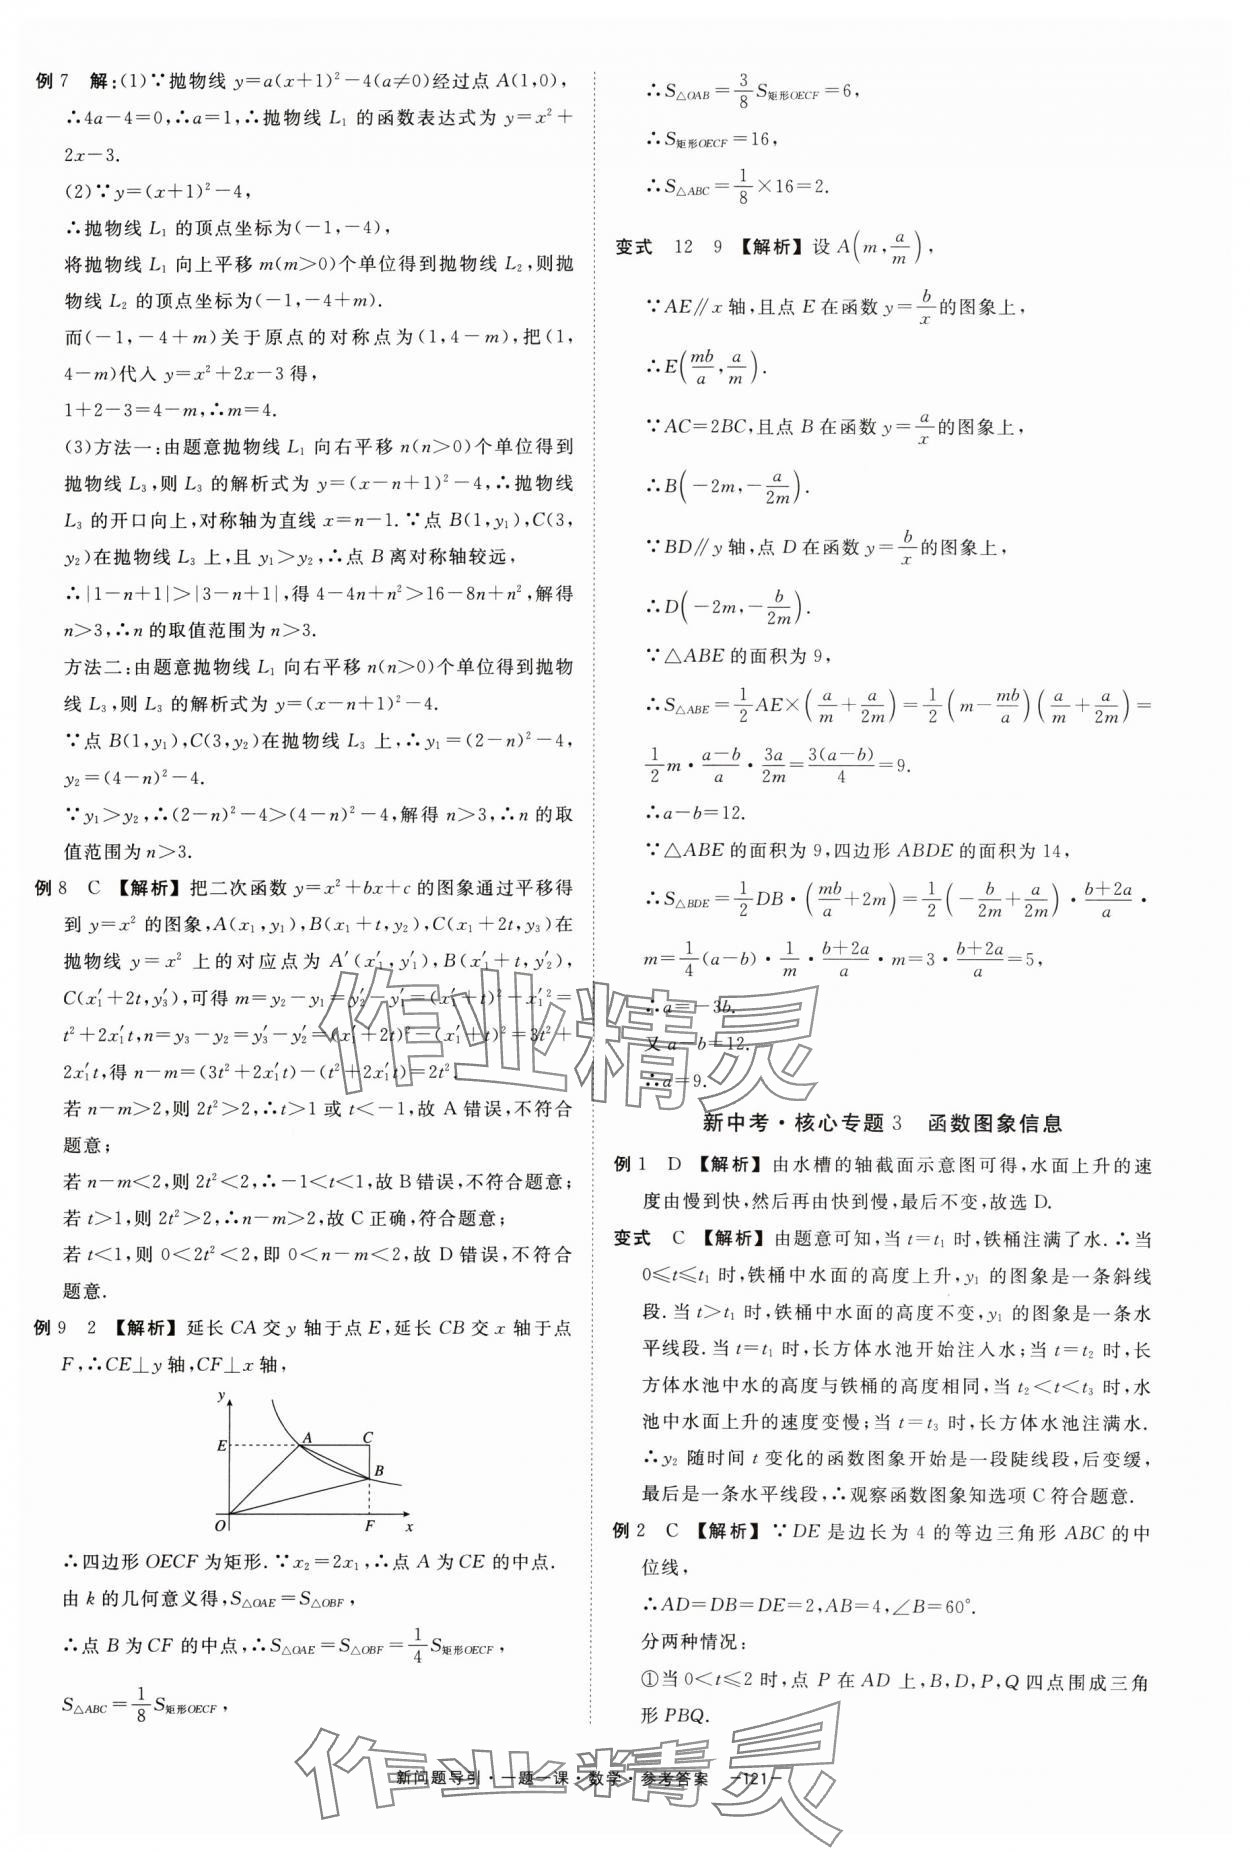 例7 解:(1)∵抛物线 y=a(x+1)²-4(a≠0)经过点 A(1,0),
∴4a-4=0,∴a=1,∴抛物线 L₁ 的函数表达式为 y=x²+
2x-3.
(2)∵y=(x+1)²-4,
∴抛物线 L₁ 的顶点坐标为(-1,-4),
将抛物线 L₁ 向上平移 m(m>0)个单位得到抛物线 L₂,则抛
物线 L₂ 的顶点坐标为(-1,-4+m).
而(-1,-4+m)关于原点的对称点为(1,4-m),把(1,
4-m)代入 y=x²+2x-3得,
1+2-3=4-m,∴m=4.
(3)方法一:由题意抛物线 L₁ 向右平移 n(n>0)个单位得到
抛物线 L₃,则 L₃ 的解析式为 y=(x-n+1)²-4,∴抛物线
L₃ 的开口向上,对称轴为直线 x=n-1.∵点 B(1,y₁),C(3,
y₂)在抛物线 L₃ 上,且 y₁>y₂,∴点 B 离对称轴较远,
∴|1-n+1|>|3-n+1|,得 4-4n+n²>16-8n+n²,解得
n>3,∴n 的取值范围为 n>3.
方法二:由题意抛物线 L₁ 向右平移 n(n>0)个单位得到抛物
线 L₃,则 L₃ 的解析式为 y=(x-n+1)²-4.
∵点 B(1,y₁),C(3,y₂)在抛物线 L₃ 上,∴y₁=(2-n)²-4,
y₂=(4-n)²-4.
∵y₁>y₂,∴(2-n)²-4>(4-n)²-4,解得 n>3,∴n 的取
值范围为 n>3.
例8 C 【解析】把二次函数 y=x²+bx+c 的图象通过平移得
到 y=x² 的图象,A(x₁,y₁),B(x₁+t,y₂),C(x₁+2t,y₃)在
抛物线 y=x² 上的对应点为 A′(x′₁,y′₁),B(x′₁+t,y′₂),
C(x′₁+2t,y′₃),可得 m=y₂-y₁=y′₂-y′₁=(x′₁+t)²-x′₁²=
t²+2x′₁t,n=y₃-y₂=y′₃-y′₂=(x′₁+2t)²-(x′₁+t)²=3t²+
2x′₁t,得 n-m=(3t²+2x′₁t)-(t²+2x′₁t)=2t².
若 n-m>2,则 2t²>2,∴t>1 或 t<-1,故 A 错误,不符合
题意;
若 n-m<2,则 2t²<2,∴-1<t<1,故 B 错误,不符合题意;
若 t>1,则 2t²>2,∴n-m>2,故 C 正确,符合题意;
若 t<1,则 0<2t²<2,即 0<n-m<2,故 D 错误,不符合
题意.
例9 2 【解析】延长 CA 交 y 轴于点 E,延长 CB 交 x 轴于点
F,∴CE⊥y 轴,CF⊥x 轴,
y
E A C
B
O F x
∴四边形 OECF 为矩形.∵x₂=2x₁,∴点 A 为 CE 的中点.
由 k 的几何意义得,S△OAE=S△OBF,
∴点 B 为 CF 的中点,∴S△OAE=S△OBF=1/4 S矩形OECF,
S△ABC=1/8 S矩形OECF,
∴S△OAB=3/8 S矩形OECF=6,
∴S矩形OECF=16,
∴S△ABC=1/8×16=2.
变式 12 9 【解析】设 A(m,a/m),
∵AE∥x 轴,且点 E 在函数 y=b/x 的图象上,
∴E(mb/a,a/m).
∵AC=2BC,且点 B 在函数 y=a/x 的图象上,
∴B(-2m,-a/2m).
∵BD∥y 轴,点 D 在函数 y=b/x 的图象上,
∴D(-2m,-b/2m).
∵△ABE 的面积为 9,
∴S△ABE=1/2 AE×(a/m+a/2m)=1/2(m-mb/a)(a/m+a/2m)=
1/2 m·(a-b)/a·3a/2m=3(a-b)/4=9.
∴a-b=12.
∵△ABE 的面积为 9,四边形 ABDE 的面积为 14,
∴S△BDE=1/2 DB·(mb/a+2m)=1/2(-b/2m+a/2m)·(b+2a)/a·
m=1/4(a-b)·1/m·(b+2a)/a·m=3·(b+2a)/a=5,
∴a=-3b.
又 a-b=12.
∴a=9.
新中考·核心专题3 函数图象信息
例1 D 【解析】由水槽的轴截面示意图可得,水面上升的速
度由慢到快,然后再由快到慢,最后不变,故选 D.
变式 C 【解析】由题意可知,当 t=t₁ 时,铁桶注满了水.∴当
0≤t≤t₁ 时,铁桶中水面的高度上升,y₁ 的图象是一条斜线
段.当 t>t₁ 时,铁桶中水面的高度不变,y₁ 的图象是一条水
平线段.当 t=t₁ 时,长方体水池开始注入水;当 t=t₂ 时,长
方体水池中水的高度与铁桶的高度相同,当 t₂<t<t₃ 时,水
池中水面上升的速度变慢;当 t=t₃ 时,长方体水池注满水.
∴y₂ 随时间 t 变化的函数图象开始是一段陡线段,后变缓,
最后是一条水平线段,∴观察函数图象知选项 C 符合题意.
例2 C 【解析】∵DE 是边长为 4 的等边三角形 ABC 的中
位线,
∴AD=DB=DE=2,AB=4,∠B=60°.
分两种情况:
①当 0<t≤2 时,点 P 在 AD 上,B,D,P,Q 四点围成三角
形 PBQ.
新问题导引·一题一课·数学·参考答案 -121-
作业精灵
作业精灵